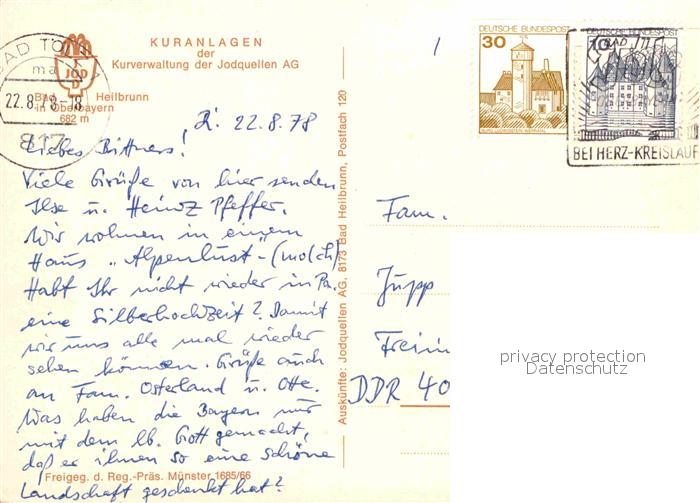 KURANLAGEN
der
Kurverwaltung der Jodquellen AG
BAD TÖ
ma
JOD
22.8.78-18
817
Bad Heilbrunn
in Oberbayern
682 m
22.8.78
Liebes Bittners!
Viele Grüße von hier senden
Ilse u. Heinz Pfeffer.
Wir wohnen in einem
Haus „Alpenlust"-(molch)
Habt Ihr nicht wieder in Pa.
eine Silberhochzeit? Damit
wir uns alle mal wieder
sehen können. Grüße auch
an Fam. Osterland u. Otte.
Was haben die Bayern nur
mit dem lb. Gott gemacht,
daß er ihnen so eine schöne
Landschaft geschenkt hat?
Freigeg. d. Reg.-Präs. Münster 1685/66
Auskünfte: Jodquellen AG, 8173 Bad Heilbrunn, Postfach 120
DEUTSCHE BUNDESPOST
30
BURG LUDWIGSTEIN WERRATAL
DEUTSCHE BUNDESPOST
10
BAD
BEI HERZ-KREISLAUF
Fam.
Jupp
Freim
DDR 40
privacy protection
Datenschutz